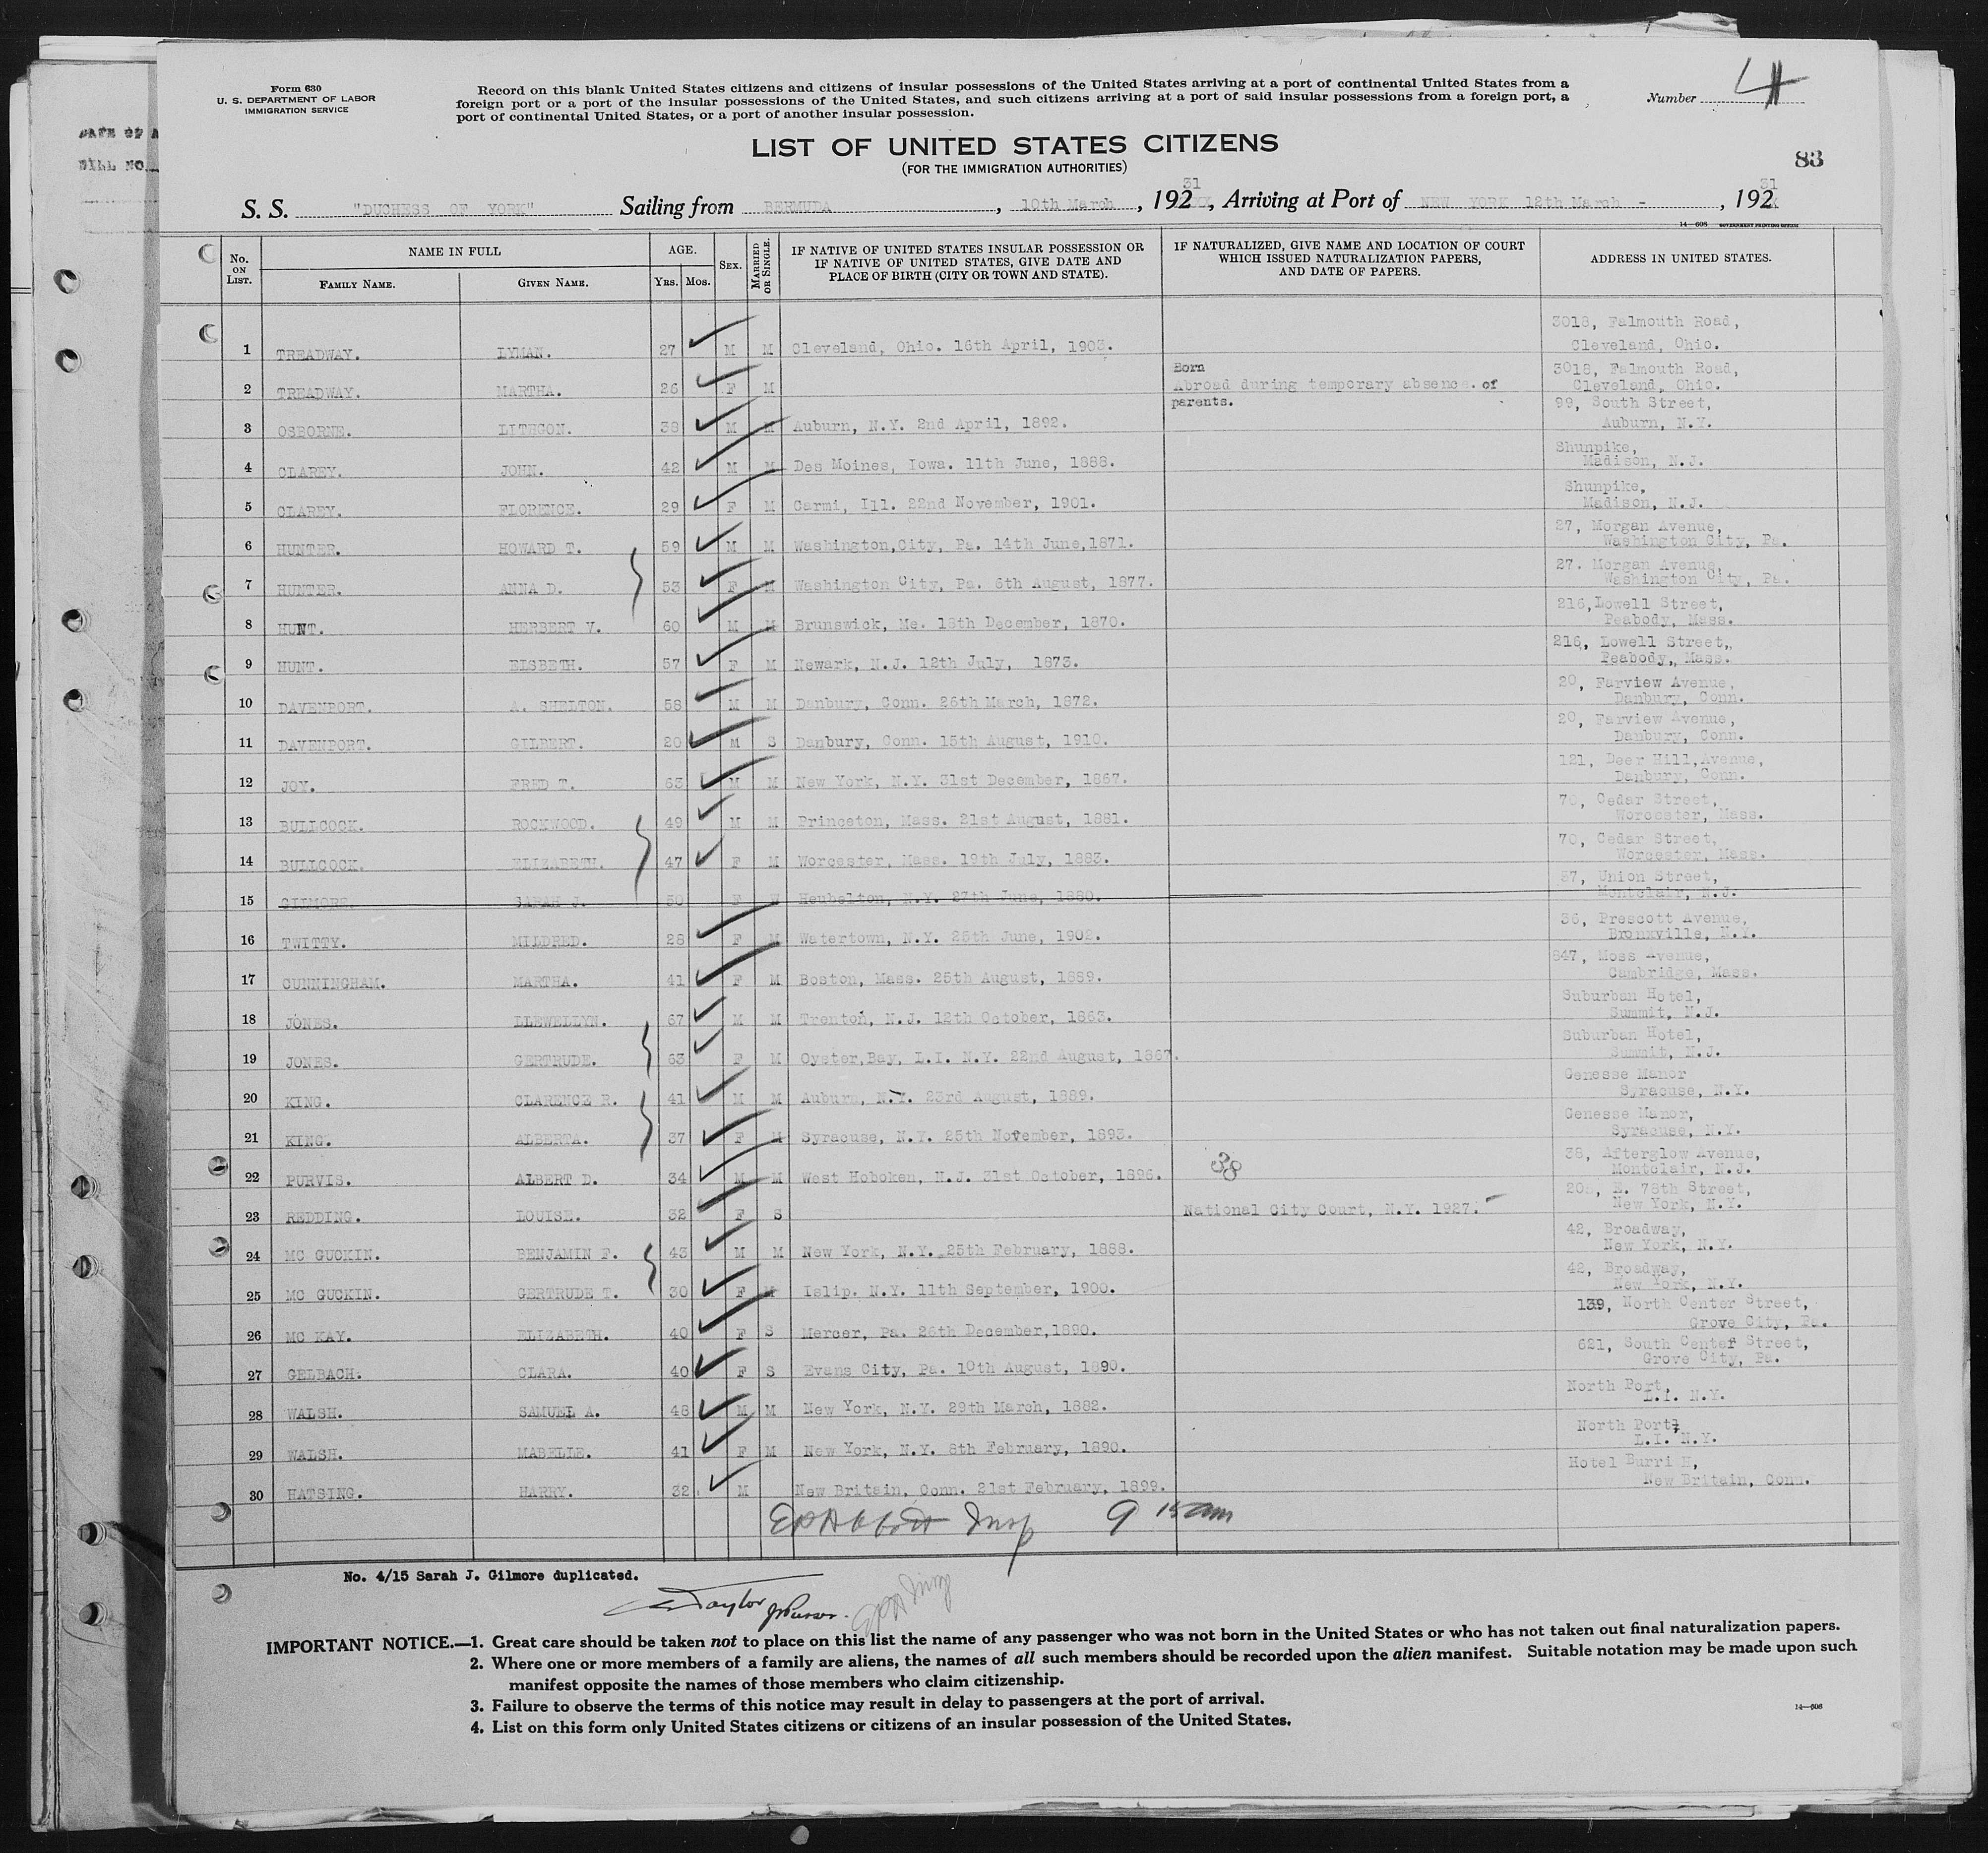 Form 630
U. S. DEPARTMENT OF LABOR
IMMIGRATION SERVICE
DATE OF A
BILL NO.
Record on this blank United States citizens and citizens of insular possessions of the United States arriving at a port of continental United States from a
foreign port or a port of the insular possessions of the United States, and such citizens arriving at a port of said insular possessions from a foreign port, a
port of continental United States, or a port of another insular possession.
Number 4
LIST OF UNITED STATES CITIZENS
(FOR THE IMMIGRATION AUTHORITIES)
83
S. S. "DUCHESS OF YORK" Sailing from BERMUDA, 10th March, 192 31, Arriving at Port of NEW YORK 12th March -, 192 31
14—608 GOVERNMENT PRINTING OFFICE
No. ON LIST. NAME IN FULL FAMILY NAME. GIVEN NAME. AGE. YRS. MOS. SEX. MARRIED OR SINGLE. IF NATIVE OF UNITED STATES INSULAR POSSESSION OR IF NATIVE OF UNITED STATES, GIVE DATE AND PLACE OF BIRTH (CITY OR TOWN AND STATE). IF NATURALIZED, GIVE NAME AND LOCATION OF COURT WHICH ISSUED NATURALIZATION PAPERS, AND DATE OF PAPERS. ADDRESS IN UNITED STATES.
1 TREADWAY. LYMAN. 27 M M Cleveland, Ohio. 16th April, 1903. 3018, Falmouth Road, Cleveland, Ohio.
2 TREADWAY. MARTHA. 26 F M Born Abroad during temporary absence. of parents. 3018, Falmouth Road, Cleveland, Ohio.
3 OSBORNE. LITHGON. 38 M M Auburn, N.Y. 2nd April, 1892. 99, South Street, Auburn, N.Y.
4 CLAREY. JOHN. 42 M M Des Moines, Iowa. 11th June, 1888. Shunpike, Madison, N.J.
5 CLAREY. FLORENCE. 29 F M Carmi, Ill. 22nd November, 1901. Shunpike, Madison, N.J.
6 HUNTER. HOWARD T. 59 M M Washington,City, Pa. 14th June,1871. 27, Morgan Avenue, Washington City, Pa.
7 HUNTER. ANNA D. 53 F M Washington City, Pa. 6th August, 1877. 27. Morgan Avenue, Washington City, Pa.
8 HUNT. HERBERT V. 60 M M Brunswick, Me. 18th December, 1870. 216,Lowell Street, Peabody, Mass.
9 HUNT. ELSBETH. 57 F M Newark, N.J. 12th July, 1873. 216, Lowell Street,, Peabody,, Mass.
10 DAVENPORT. A. SHELTON. 58 M M Danbury, Conn. 26th March, 1872. 20, Farview Avenue, Danbury, Conn.
11 DAVENPORT. GILBERT. 20 M S Danbury, Conn. 15th August, 1910. 20, Farview Avenue, Danbury, Conn.
12 JOY. FRED T. 63 M M New York, N.Y. 31st December, 1867. 121, Deer Hill,Avenue, Danbury, Conn.
13 BULLCOCK. ROCKWOOD. 49 M M Princeton, Mass. 21st August, 1881. 70, Cedar Street, Worcester, Mass.
14 BULLCOCK. ELIZABETH. 47 F M Worcester, Mass. 19th July, 1883. 70, Cedar Street, Worcester, Mass.
15 GILMORE. SARAH J. 50 F Heubelton, N.Y. 27th June, 1880. 87, Union Street, Montclair, N.J.
16 TWITTY. MILDRED. 28 F M Watertown, N.Y. 25th June, 1902. 36, Prescott Avenue, Bronxville, N.Y.
17 CUNNINGHAM. MARTHA. 41 F M Boston, Mass. 25th August, 1889. 847, Moss Avenue, Cambridge, Mass.
18 JONES. LLEWELLYN. 67 M M Trenton, N.J. 12th October, 1863. Suburban Hotel, Summit, N.J.
19 JONES. GERTRUDE. 63 F M Oyster,Bay, L.I. N.Y. 22nd August, 1867. Suburban Hotel, Summit, N.J.
20 KING. CLARENCE R. 41 M M Auburn, N.Y. 23rd August, 1889. Genesse Manor Syracuse, N.Y.
21 KING. ALBERTA. 37 F M Syracuse, N.Y. 25th November, 1893. Genesse Manor, Syracuse, N.Y.
22 PURVIS. ALBERT D. 34 M M West Hoboken, N.J. 31st October, 1896. 38 38, Afterglow Avenue, Montclair, N.J.
23 REDDING. LOUISE. 32 F S National City Court, N.Y. 1927. E. 78th Street, New York, N.Y.
24 MC GUCKIN. BENJAMIN F. 43 M M New York, N.Y. 25th February, 1888. 42, Broadway, New York, N.Y.
25 MC GUCKIN. GERTRUDE T. 30 F M Islip. N.Y. 11th September, 1900. 42, Broadway, New York, N.Y.
26 MC KAY. ELIZABETH. 40 F S Mercer, Pa. 26th December,1890. 139, North Center Street, Grove City, Pa.
27 GELBACH. CLARA. 40 F S Evans City, Pa. 10th August, 1890. 621, South Center Street, Grove City, Pa.
28 WALSH. SAMUEL A. 48 M M New York, N.Y. 29th March, 1882. North Port, L.I. N.Y.
29 WALSH. MABELLE. 41 F M New York, N.Y. 8th February, 1890. North Port, L.I. N.Y.
30 HATSING. HARRY. 32 M New Britain, Conn. 21st February, 1899. Hotel Burri H, New Britain, Conn.
Insp 9 15 am
No. 4/15 Sarah J. Gilmore duplicated.
Taylor Purser.
IMPORTANT NOTICE.—1. Great care should be taken not to place on this list the name of any passenger who was not born in the United States or who has not taken out final naturalization papers.
2. Where one or more members of a family are aliens, the names of all such members should be recorded upon the alien manifest. Suitable notation may be made upon such
manifest opposite the names of those members who claim citizenship.
3. Failure to observe the terms of this notice may result in delay to passengers at the port of arrival.
4. List on this form only United States citizens or citizens of an insular possession of the United States.
14—608